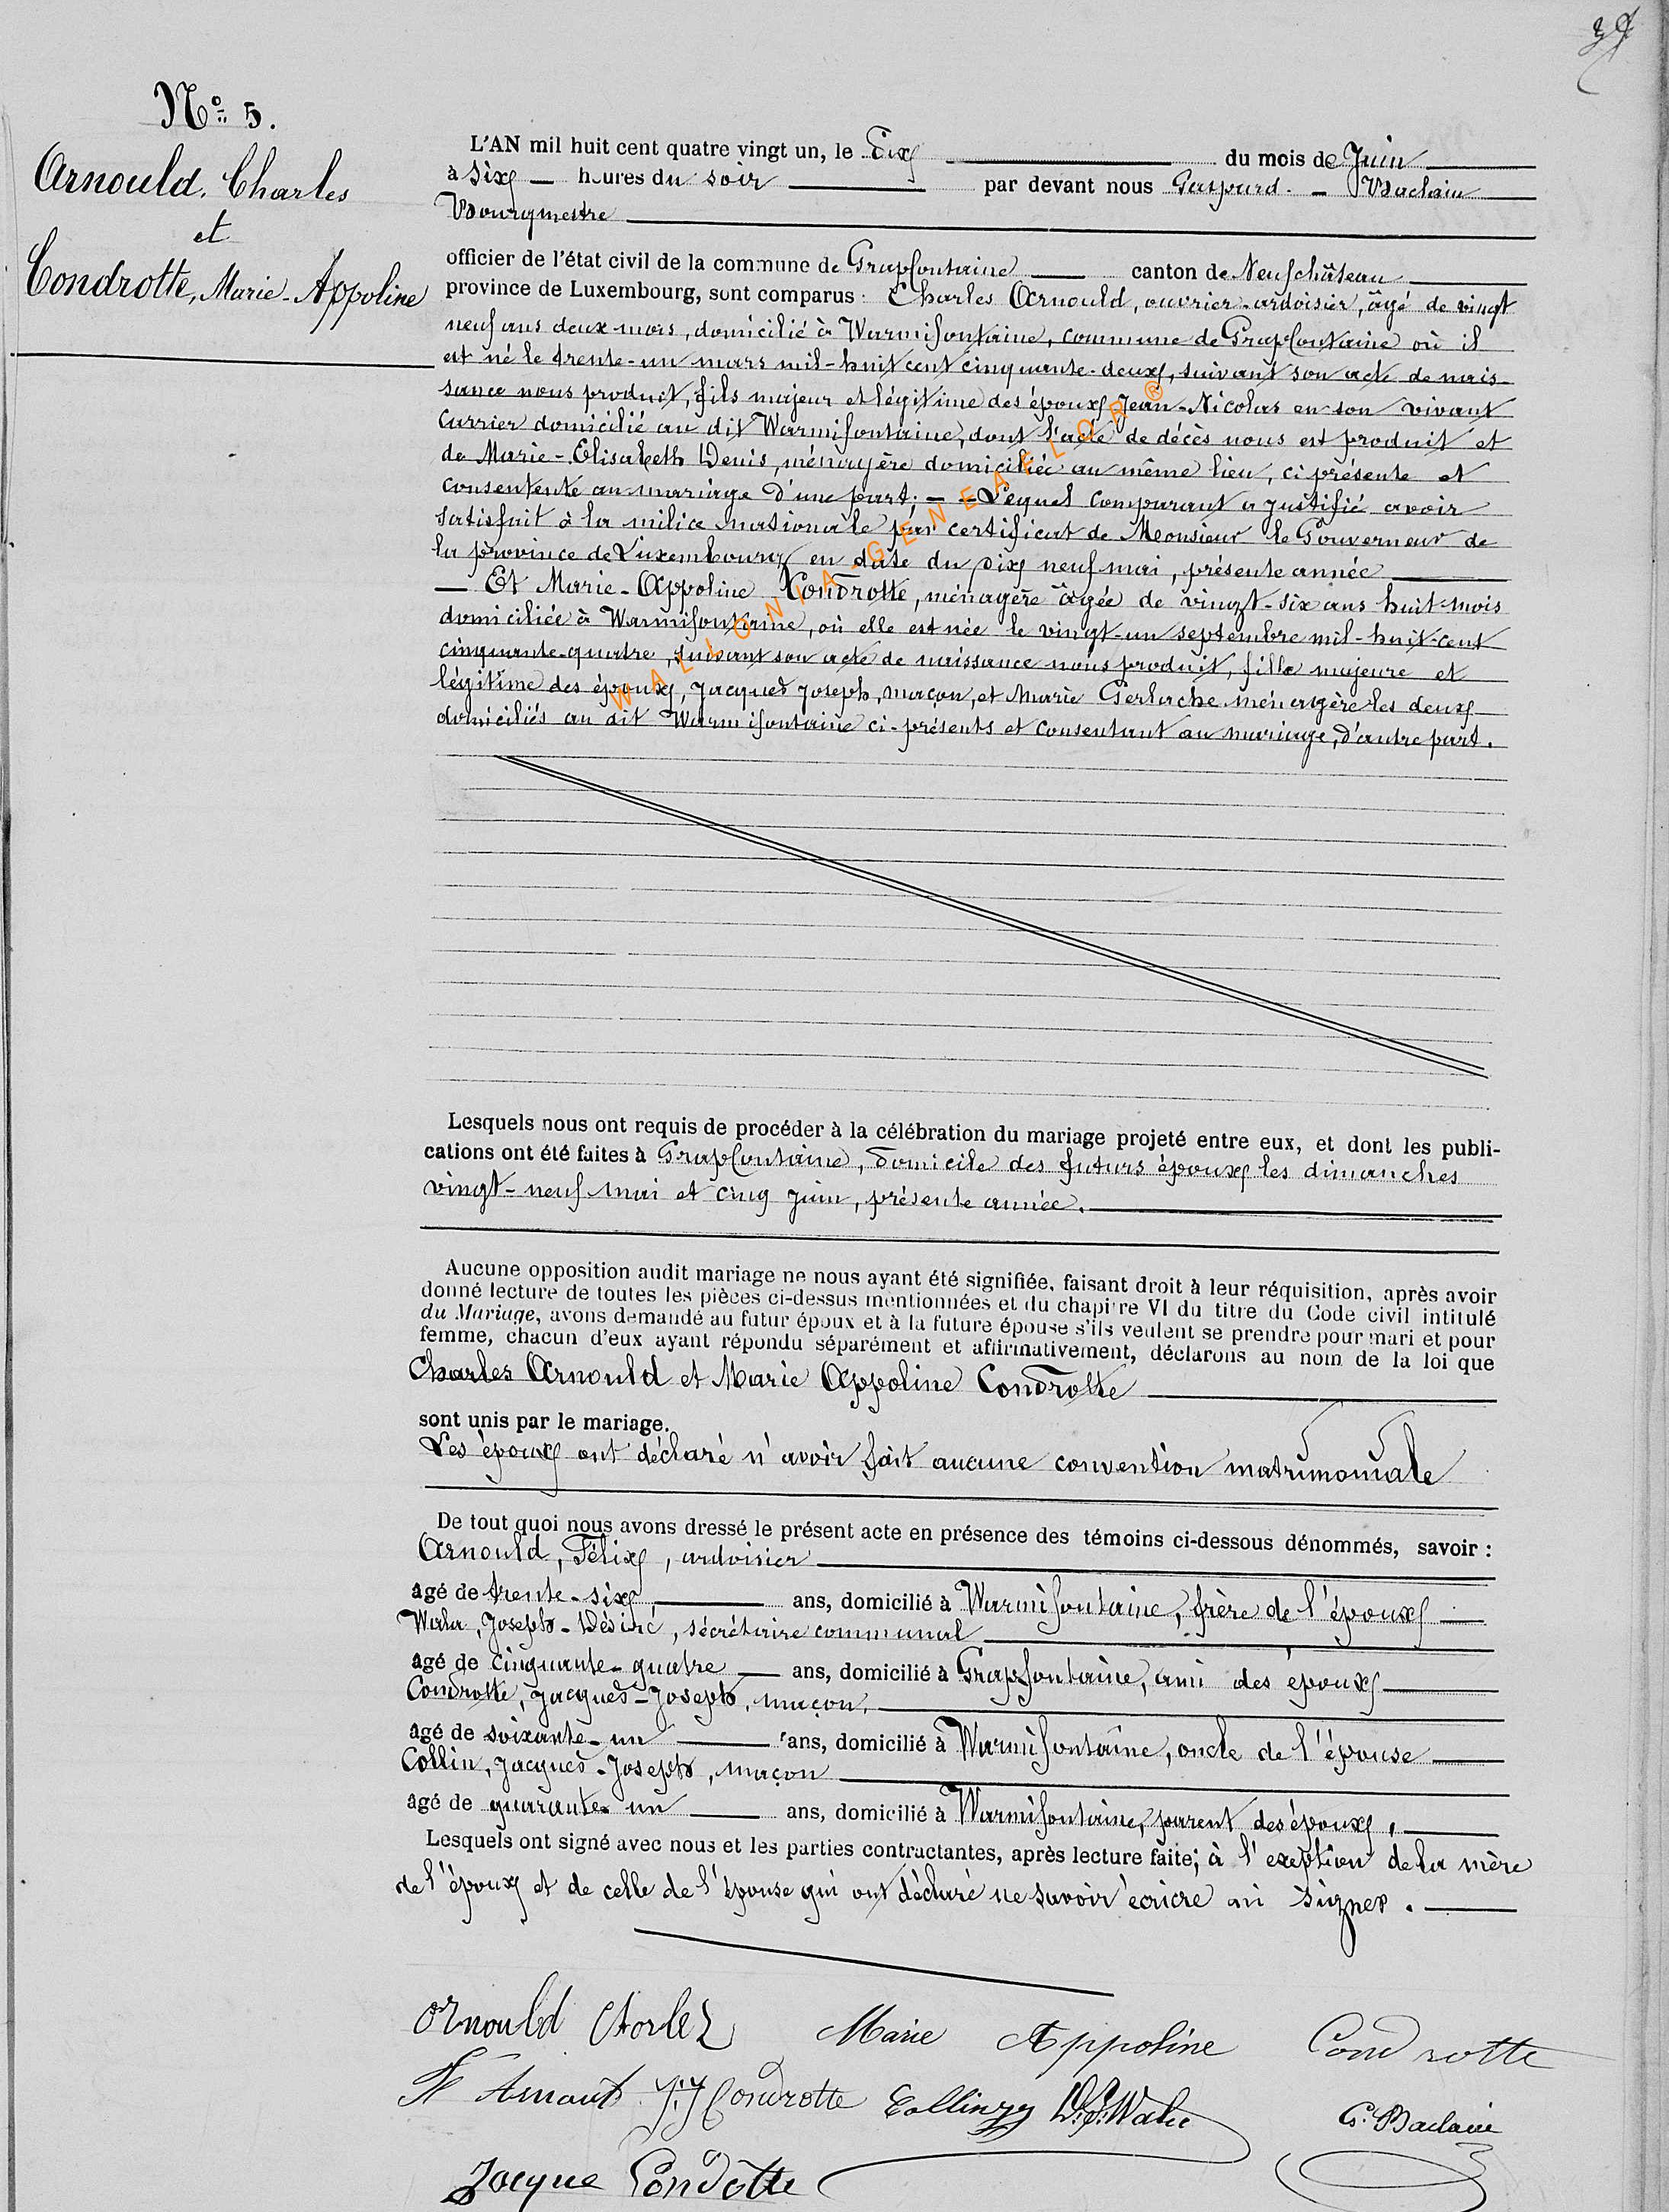 Nº 5.
Arnould, Charles
et
Condrotte, Marie-Appoline
L'AN mil huit cent quatre vingt un, le Dix du mois de Juin
à Six — heures du soir par devant nous Gaspard — Baclain
Bourgmestre
officier de l'état civil de la commune de Grapfontaine canton de Neufchâteau
province de Luxembourg, sont comparus : Charles Arnould, ouvrier-ardoisier, âgé de vingt
neuf ans deux mois, domicilié à Warmifontaine, commune de Grapfontaine où il
est né le trente-un mars mil-huit cent cinquante-deux, suivant son acte de nais-
sance nous produit, fils majeur et légitime des époux Jean-Nicolas en son vivant
Carrier domicilié au dit Warmifontaine, dont l'acte de décès nous est produit et
de Marie-Elisabeth Denis, ménagère domiciliée au même lieu, ci présente et
consentente au mariage d'une part; — Lequel comparant a justifié avoir
satisfait à la milice nationale par certificat de Monsieur le Gouverneur de
la province de Luxembourg en date du Dix neuf mai, présente année
— Et Marie-Appoline Condrotte, ménagère âgée de vingt-six ans huit mois
domiciliée à Warmifontaine, où elle est née le vingt-un septembre mil-huit-cent
cinquante-quatre, suivant son acte de naissance nous produit, fille majeure et
légitime des époux, Jacques Joseph, maçon, et Marie Gerlache ménagère les deux
domiciliés au dit Warmifontaine ci-présents et consentant au mariage, d'autre part.
WALLONIA-GENEAELOR®
Lesquels nous ont requis de procéder à la célébration du mariage projeté entre eux, et dont les publi-
cations ont été faites à Grapfontaine, domicile des futurs époux les dimanches
vingt-neuf mai et cinq juin, présente année.
Aucune opposition audit mariage ne nous ayant été signifiée, faisant droit à leur réquisition, après avoir
donné lecture de toutes les pièces ci-dessus mentionnées et du chapitre VI du titre du Code civil intitulé
du Mariage, avons demandé au futur époux et à la future épouse s'ils veulent se prendre pour mari et pour
femme, chacun d'eux ayant répondu séparément et affirmativement, déclarons au nom de la loi que
Charles Arnould et Marie Appoline Condrotte
sont unis par le mariage.
Les époux ont déclaré n'avoir fait aucune convention matrimoniale
De tout quoi nous avons dressé le présent acte en présence des témoins ci-dessous dénommés, savoir :
Arnould, Félix, ardoisier
agé de trente-six ans, domicilié à Warmifontaine, frère de l'époux
Wala, Joseph-Désiré, sécrétaire communal
agé de cinquante-quatre ans, domicilié à Grapfontaine, ami des époux
Condrotte, Jacques-Joseph, maçon,
agé de soixante-un ans, domicilié à Warmifontaine, oncle de l'épouse
Collin, Jacques-Joseph, maçon
agé de quarante-un ans, domicilié à Warmifontaine, parent des époux,
Lesquels ont signé avec nous et les parties contractantes, après lecture faite; à l'exeption de la mère
de l'époux et de celle de l'épouse qui ont déclaré ne savoir écrire ni signer.
Arnould Charles Marie Appoline Condrotte
F Arnout J.J Condrotte Collin JJ D.J. Wala G. Baclain
Jacque Condotte